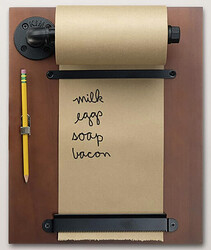 milk
eggs
soap
bacon